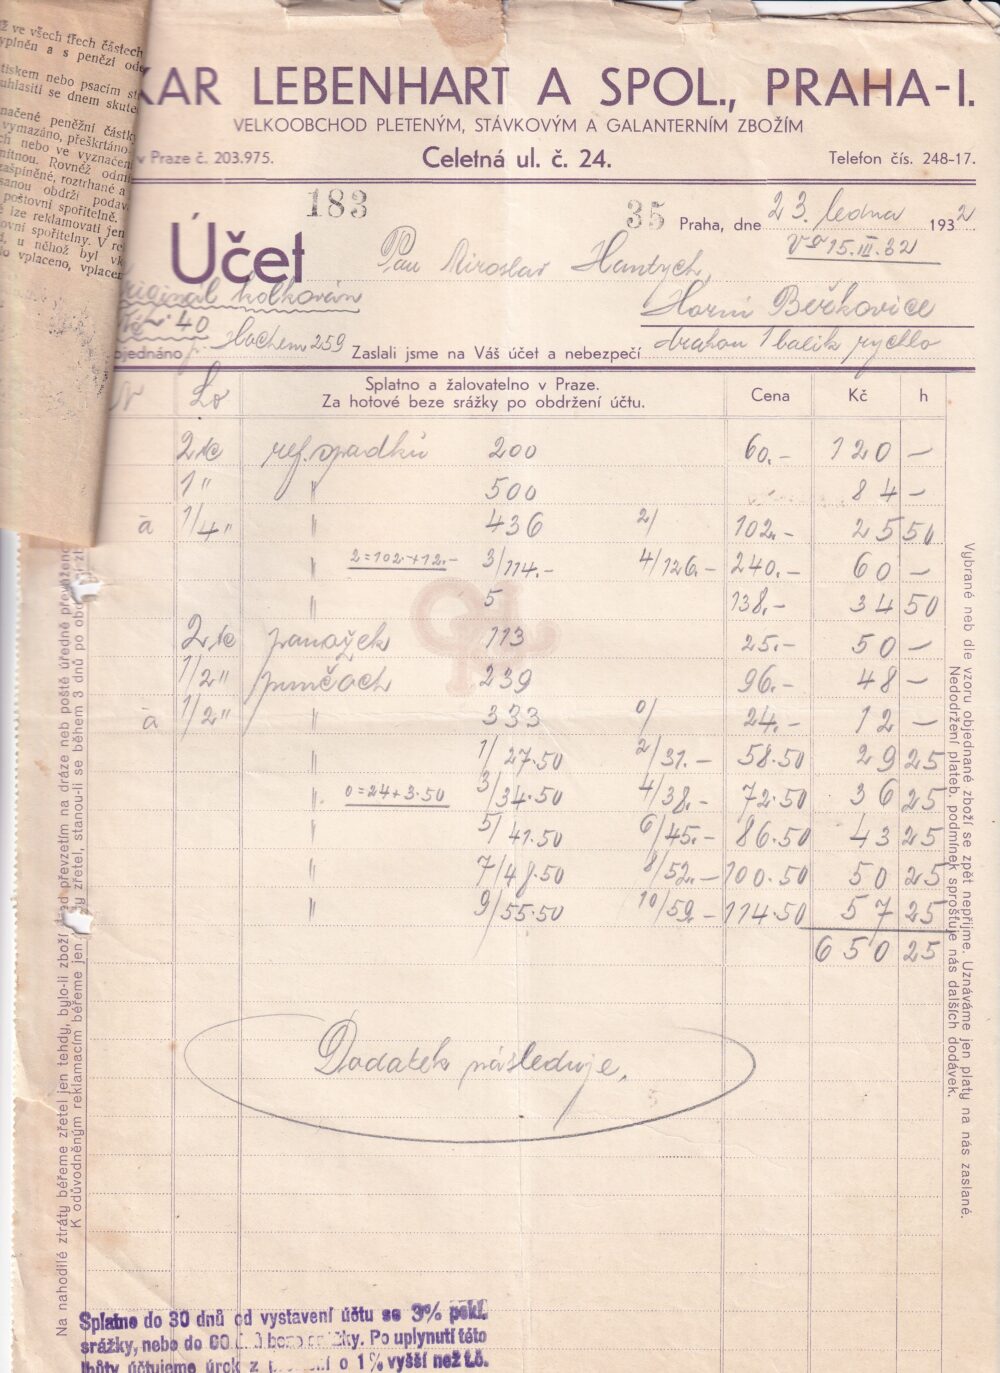 ž ve všech třech částech
vyplněn a s penězi ode
tiskem nebo psacím st
uhlasiti se dnem skute
načené peněžní částk
vymazáno, přeškrtáno
ch nebo ve vyznačen
mítnou. Rovněž odmí
zašpiněné, roztrhané a
sanou obdrží podav
poštovní spořitelně.
ě lze reklamovati jen
ovní spořitelny. V re
u něhož byl vk
o vplaceno, vplacen
KAR LEBENHART A SPOL., PRAHA-I.
VELKOOBCHOD PLETENÝM, STÁVKOVÝM A GALANTERNÍM ZBOŽÍM
v Praze č. 203.975. Celetná ul. č. 24. Telefon čís. 248-17.
183 35 Praha, dne 23. ledna 1932
15.III.32
Účet Pan Miroslav Hantych,
originál kolkován Horní Beřkovice
40
objednáno p. Hochem 259 Zaslali jsme na Váš účet a nebezpečí drahou 1 balík rychlo
Splatno a žalovatelno v Praze.
Za hotové beze srážky po obdržení účtu. Cena Kč h
2 ref. spadků 200 60.- 120 –
1 " " 500 84 –
à 1/4 " " 436 2/ 102.- 25 50
" 2=102.-+12.- 3/114.- 4/126.- 240.- 60 –
" 5 138.- 34 50
2 ponožek 113 25.- 50 –
1/2 " punčoch 239 96.- 48 –
à 1/2 " " 333 0/ 24.- 12 –
" 1/27.50 2/31.- 58.50 29 25
" 0=24+3.50 3/34.50 4/38.- 72.50 36 25
" 5/41.50 6/45.- 86.50 43 25
" 7/48.50 8/52.- 100.50 50 25
" 9/55.50 10/59.- 114.50 57 25
650 25
Dodatek následuje.
Splatno do 30 dnů od vystavení účtu se 3% pokl.
srážky, nebo do 60 dnů beze srážky. Po uplynutí této
lhůty účtujeme úrok z prodlení o 1% vyšší než t.č.
Na nahodilé ztráty béřeme zřetel jen tehdy, bylo-li zboží před převzetím na dráze neb poště úředně převženo
K odůvodněným reklamacím béřeme jen zřetel, stanou-li se během 3 dnů po obdržení
Vybrané neb dle vzoru objednané zboží se zpět nepřijme. Uznáváme jen platy na nás zaslané.
Nedodržení plateb. podmínek sprošťuje nás dalších dodávek.